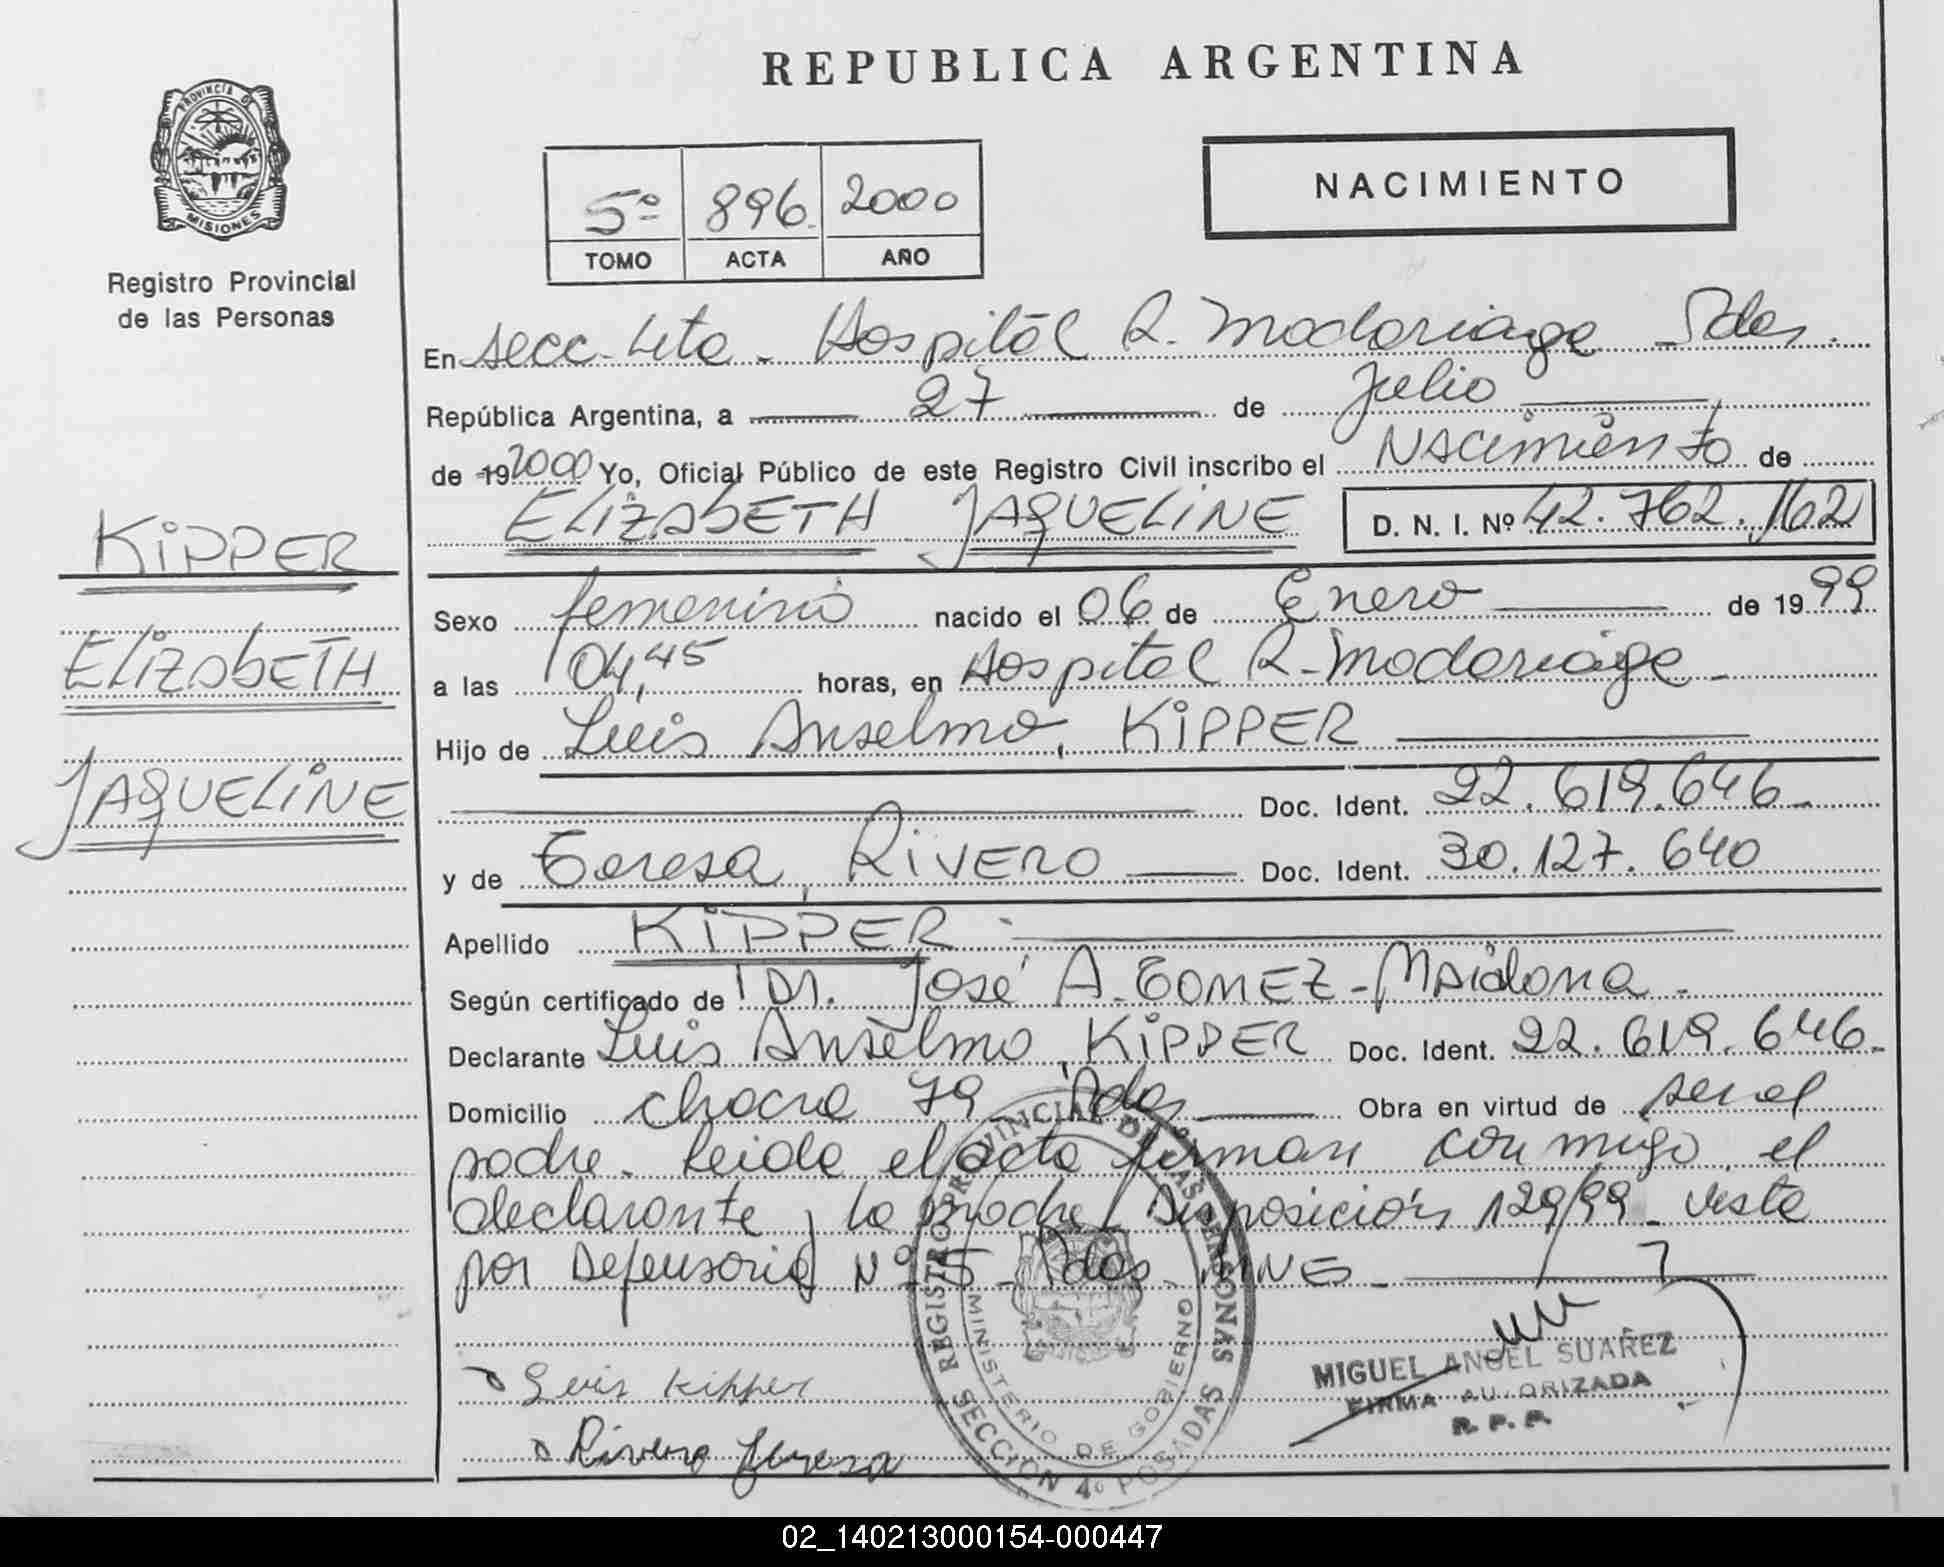 REPUBLICA ARGENTINA
PROVINCIA DE
MISIONES
Registro Provincial
de las Personas
5º 896 2000
TOMO ACTA AÑO
NACIMIENTO
En secc. 4ta. Hospital R. Madariaga Pdas.
República Argentina, a 27 de Julio
de 19 2000 Yo, Oficial Público de este Registro Civil inscribo el NAcimiento de
ELizAbETH JAQUELiNE D. N. I. Nº 42.762.162
KiPPER
ELizAbETH
JAQUELiNE
Sexo femenino nacido el 06 de Enero de 1999
a las 04,45 horas, en Hospital R. Madariaga
Hijo de Luis Anselmo, KiPPER
Doc. Ident. 22.619.646.
y de Teresa, RiVERO Doc. Ident. 30.127.640
Apellido KiPPER
Según certificado de Dr. José A. GOMEZ - Maidana.
Declarante Luis Anselmo, KiPPER Doc. Ident. 22.619.646.
Domicilio chacra 79 Pdas Obra en virtud de ser el
padre. Leida el acta firman conmigo el
declarante y la madre. Disposición 129/99. Vista
por Defensoria Nº 5 - Pdas.
Luis Kipper
Rivero Teresa
REGISTRO PROVINCIAL DE LAS PERSONAS
MINISTERIO DE GOBIERNO
SECCION 4º POSADAS
MIGUEL ANGEL SUAREZ
FIRMA AUTORIZADA
R. P. P.
02_140213000154-000447